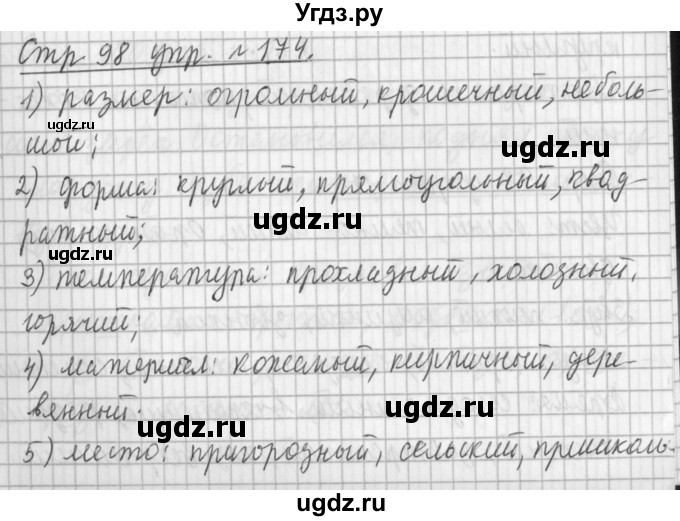 Угдз.ру
Стр 98 упр. № 174.
1) размер: огромный, крошечный, неболь-
ugdz.ru
ugdz.ru
шой;
2) форма: круглый, прямоугольный, квад-
ugdz.ru
ugdz.ru
ратный;
3) температура: прохладный, холозный,
горячий;
4) материал: кожаный, кирпичный, дере-
венный.
ugdz.ru
ugdz.ru
5) место: пригородный, сельский, пришколь-
ugdz.ru